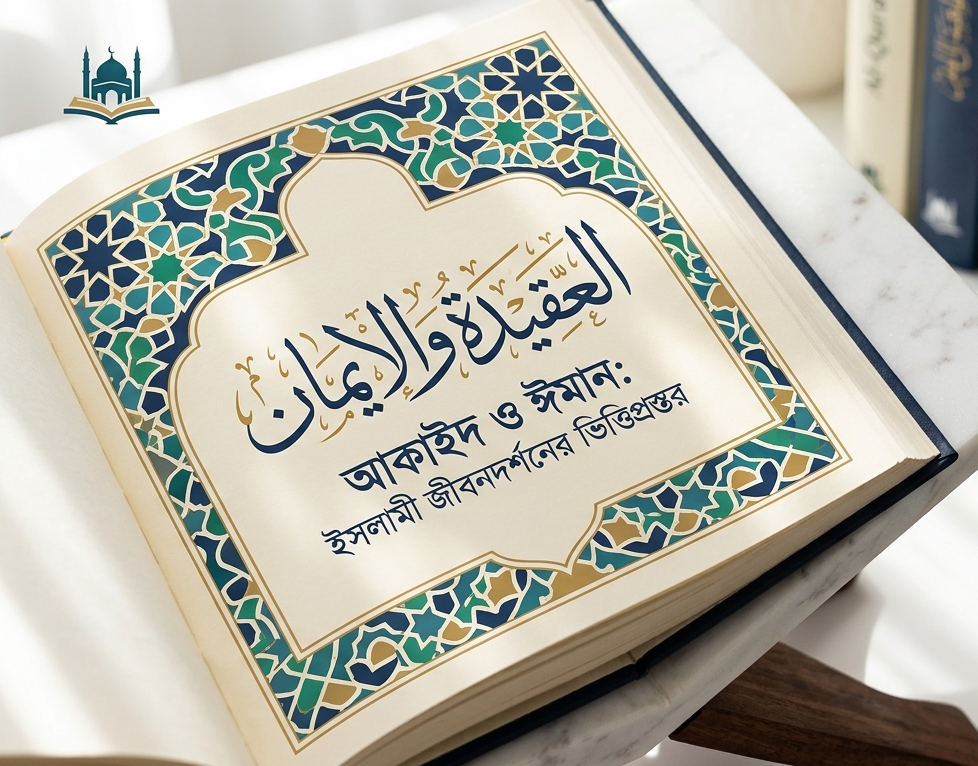 العقيدة والايمان
আকাইদ ও ঈমান:
ইসলামী জীবনদর্শনের ভিত্তিপ্রস্তর
Al-Qura